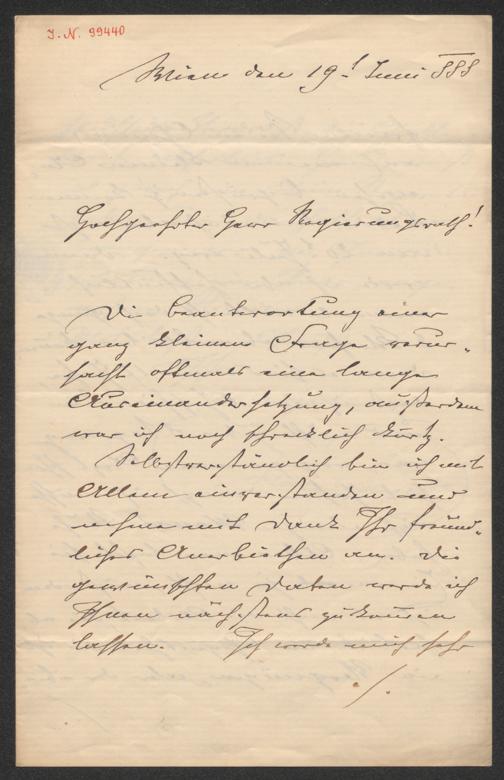 I. N. 99440
Wien den 19t Juni 888
Hochgeehrter Herr Regierungsrath!
Die Beantwortung einer
ganz kleinen Frage verur-
sacht oftmals eine lange
Auseinandersetzung, außerdem
war ich noch schrecklich kurz.
Selbstverständlich bin ich mit
Allem einverstanden und
nehme mit Dank Ihr freund-
liches Anerbiethen an. Die
gewünschten Daten werde ich
Ihnen nächstens zukommen
lassen. Ich werde mich sehr
./.